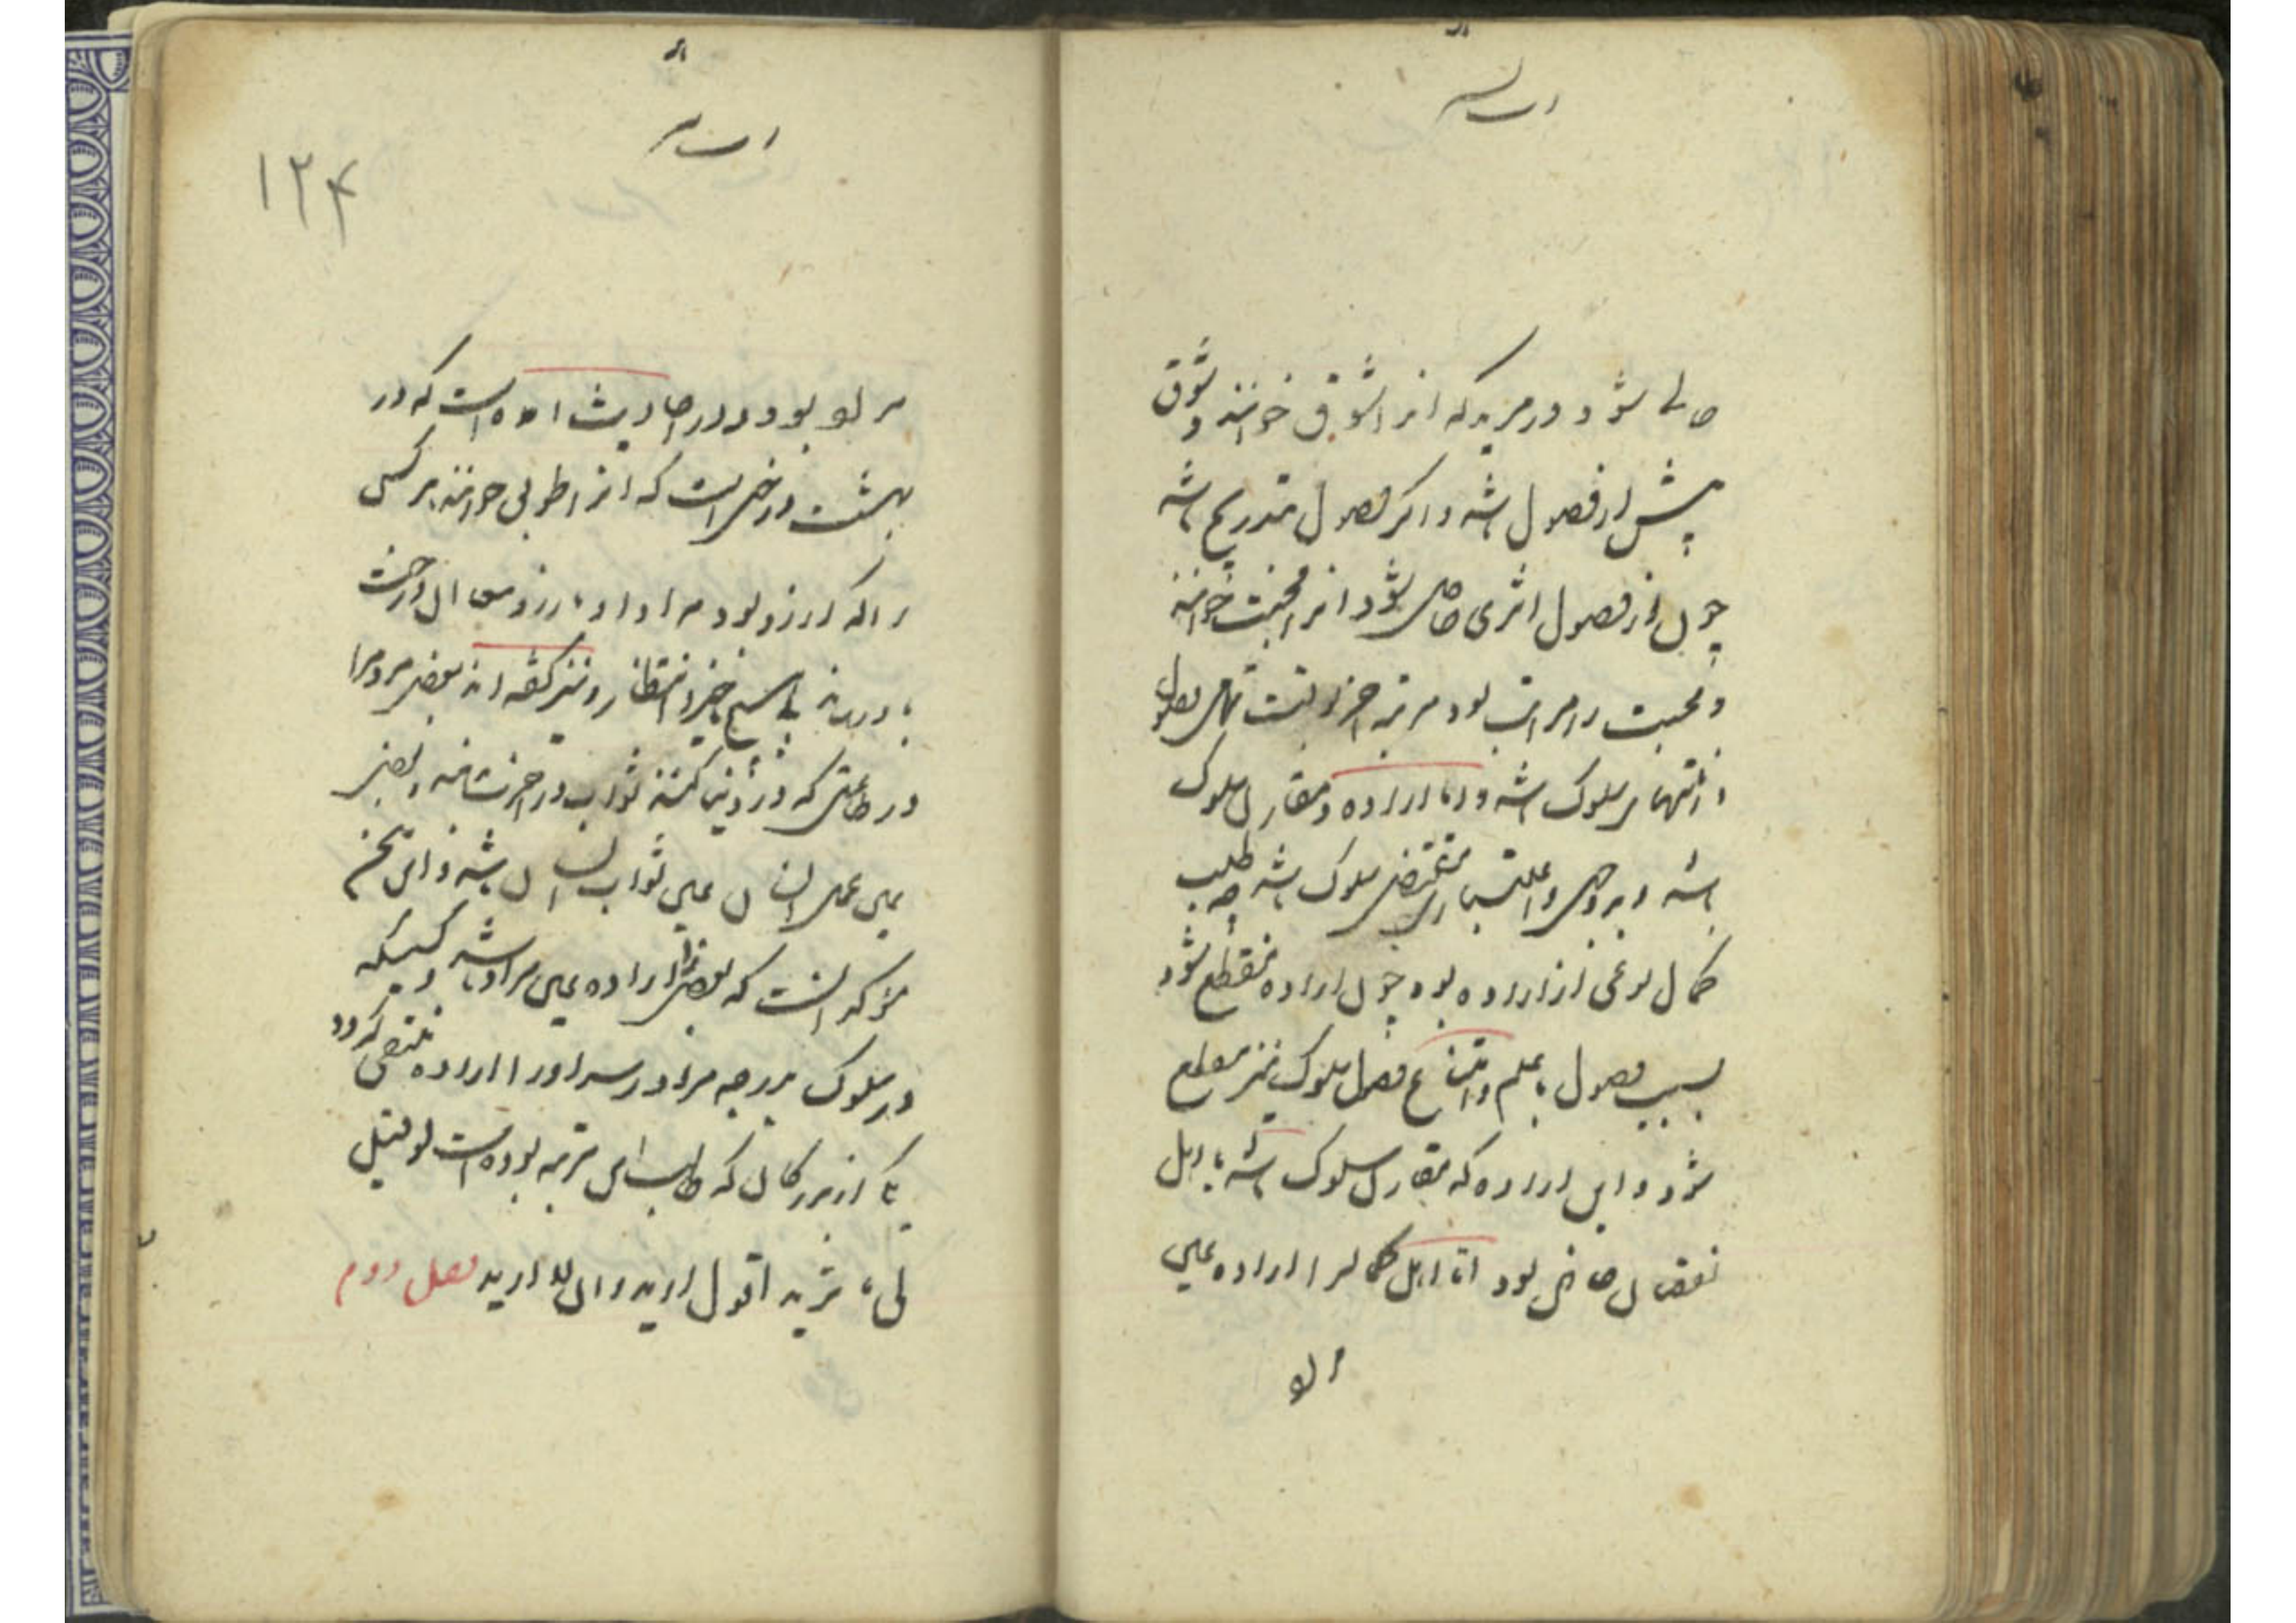 حالی شود در مرید که انرا شوق خوانند و شوق
پیش از وصول باشد و اگر وصول بتدریج باشد
چون از وصول اثری حاصل شود انرا محبت خوانند
و محبت را مراتب بود مرتبه اخر محبت تمامی وصول
و انتهای سلوک باشد و اما اراده مقارن سلوک
باشد و بر وجهی و اعتباری مقتضی سلوک باشد چه طلب
کمال نوعی از اراده بود چون اراده منقطع شود
بسبب وصول یا بعلم وامتناع وصول سلوک نیز منقطع
شود و این اراده که مقارن سلوک باشد باهل
نقصان خاص بود اما اهل کمال را اراده عین
مراد
۱۲۴
مراد بود و در احادیث امده است که در
بهشت درختی است که انرا طوبی خوانند هر کسی
را که ارزو بود مراد او با ارزوی ان درخت
باو رساند بی هیچ تاخیر و انتظار و نیز گفته اند بعضی مردم را
در طاعتی که در دنیا کنند ثواب در اخرت یابند و بعضی
عین عمل ایشان عین ثواب ایشان باشد و این سخن
مؤکد انست که بعضی را اراده عین مراد باشد و کسیکه
در سلوک بدرجه رضا رسد او را اراده منتفی گردد
یکی از بزرگان که طالب این مرتبه بوده است لو قیل
لی ما ترید اقول ارید وان لا ارید فصل دوم